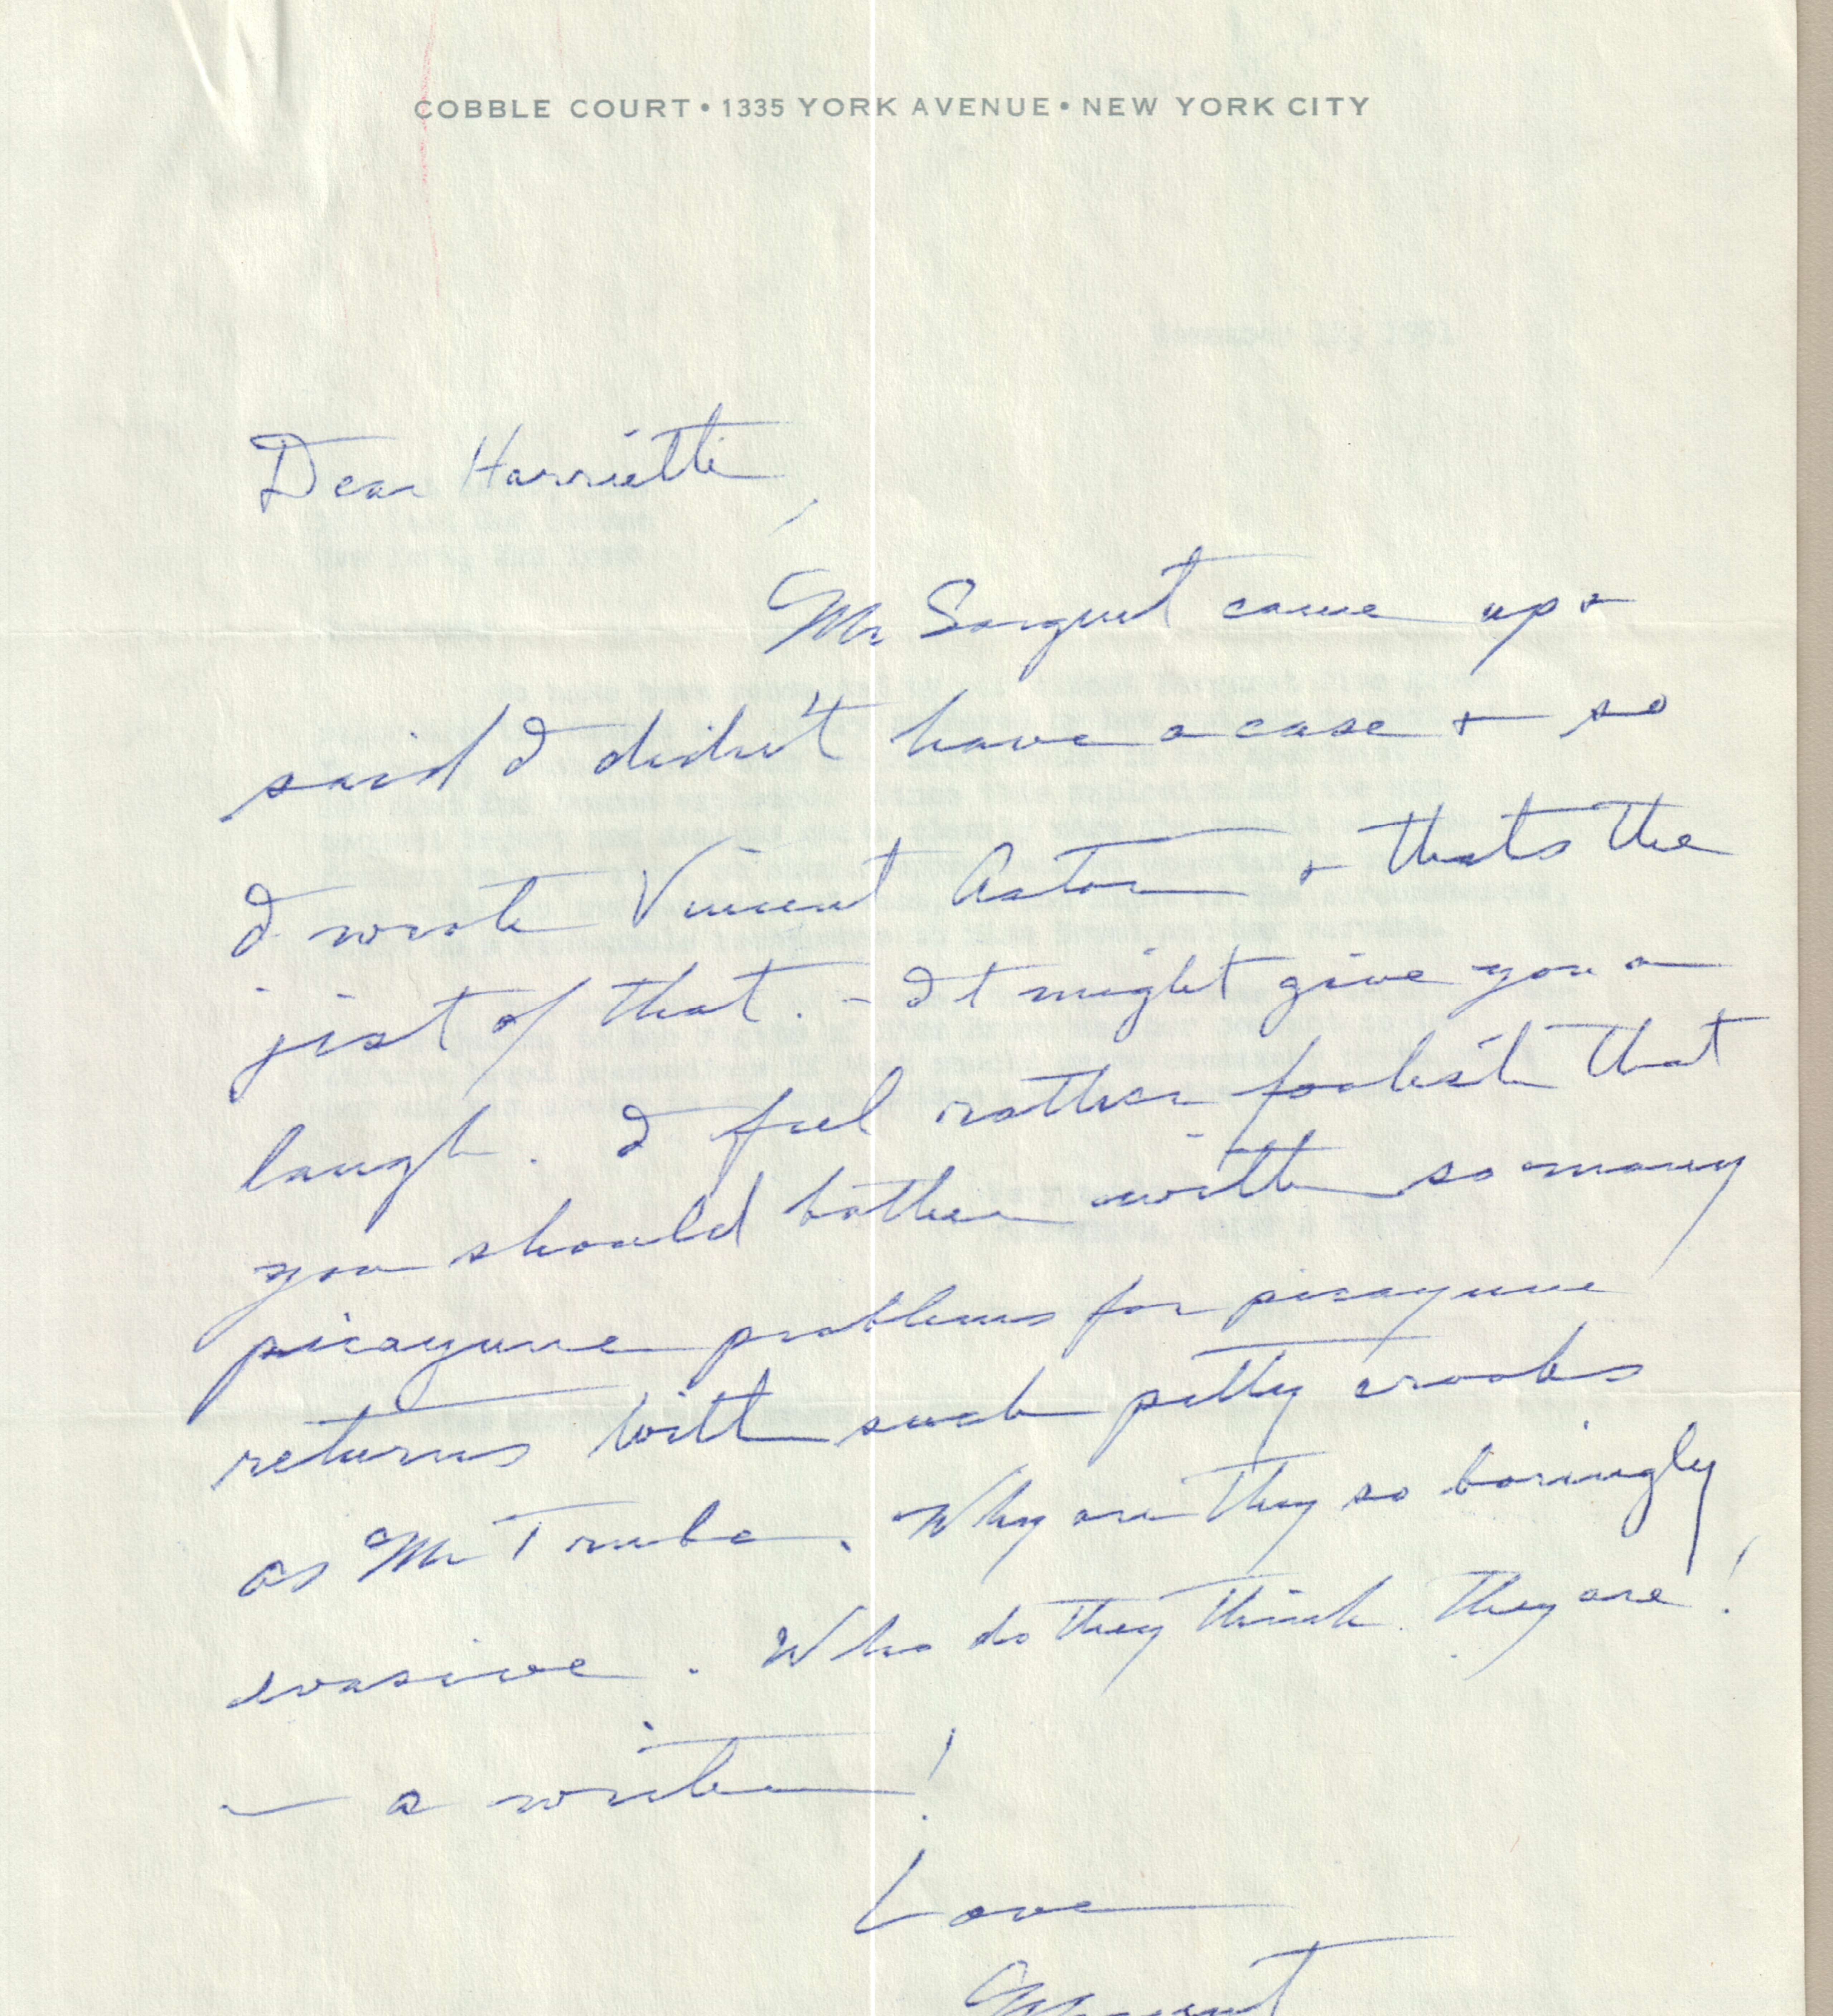 COBBLE COURT • 1335 YORK AVENUE • NEW YORK CITY
Dear Harriette,
Mr Sargent came up &
said I didn't have a case & so
I wrote Vincent Astor & thats the
jist of that. - It might give you a
laugh. I feel rather foolish that
you should bother with so many
picayune problems for picayune
returns with such petty crooks
as Mr Truba. Why are they so boringly
evasive. Who do they think they are!
— a writer!
Love